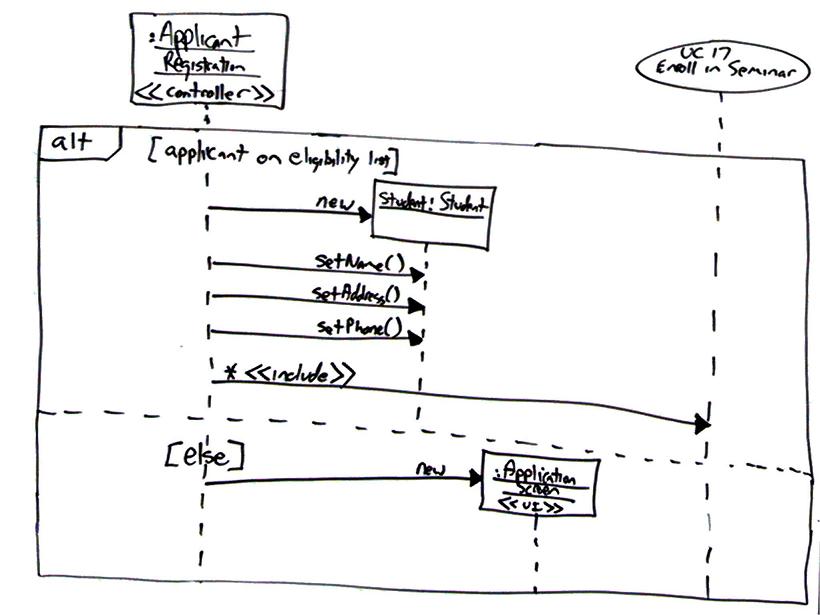 :Applicant
Registration
<<controller>>
UC 17
Enroll in Seminar
alt
[applicant on eligibility list]
new
Student: Student
setName()
setAddress()
setPhone()
* <<include>>
[else]
new
:Application
Screen
<<UI>>